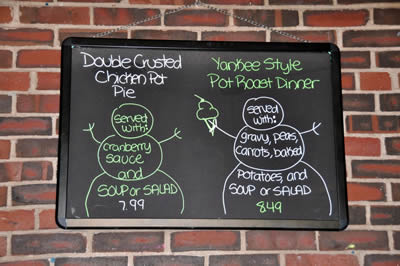 Double Crusted
Chicken Pot
Pie
served
with:
cranberry
sauce
and
SOUP or SALAD
7.99
Yankee Style
Pot Roast Dinner
served
with:
gravy, peas,
carrots, baked
potatoes and
SOUP or SALAD
8.49